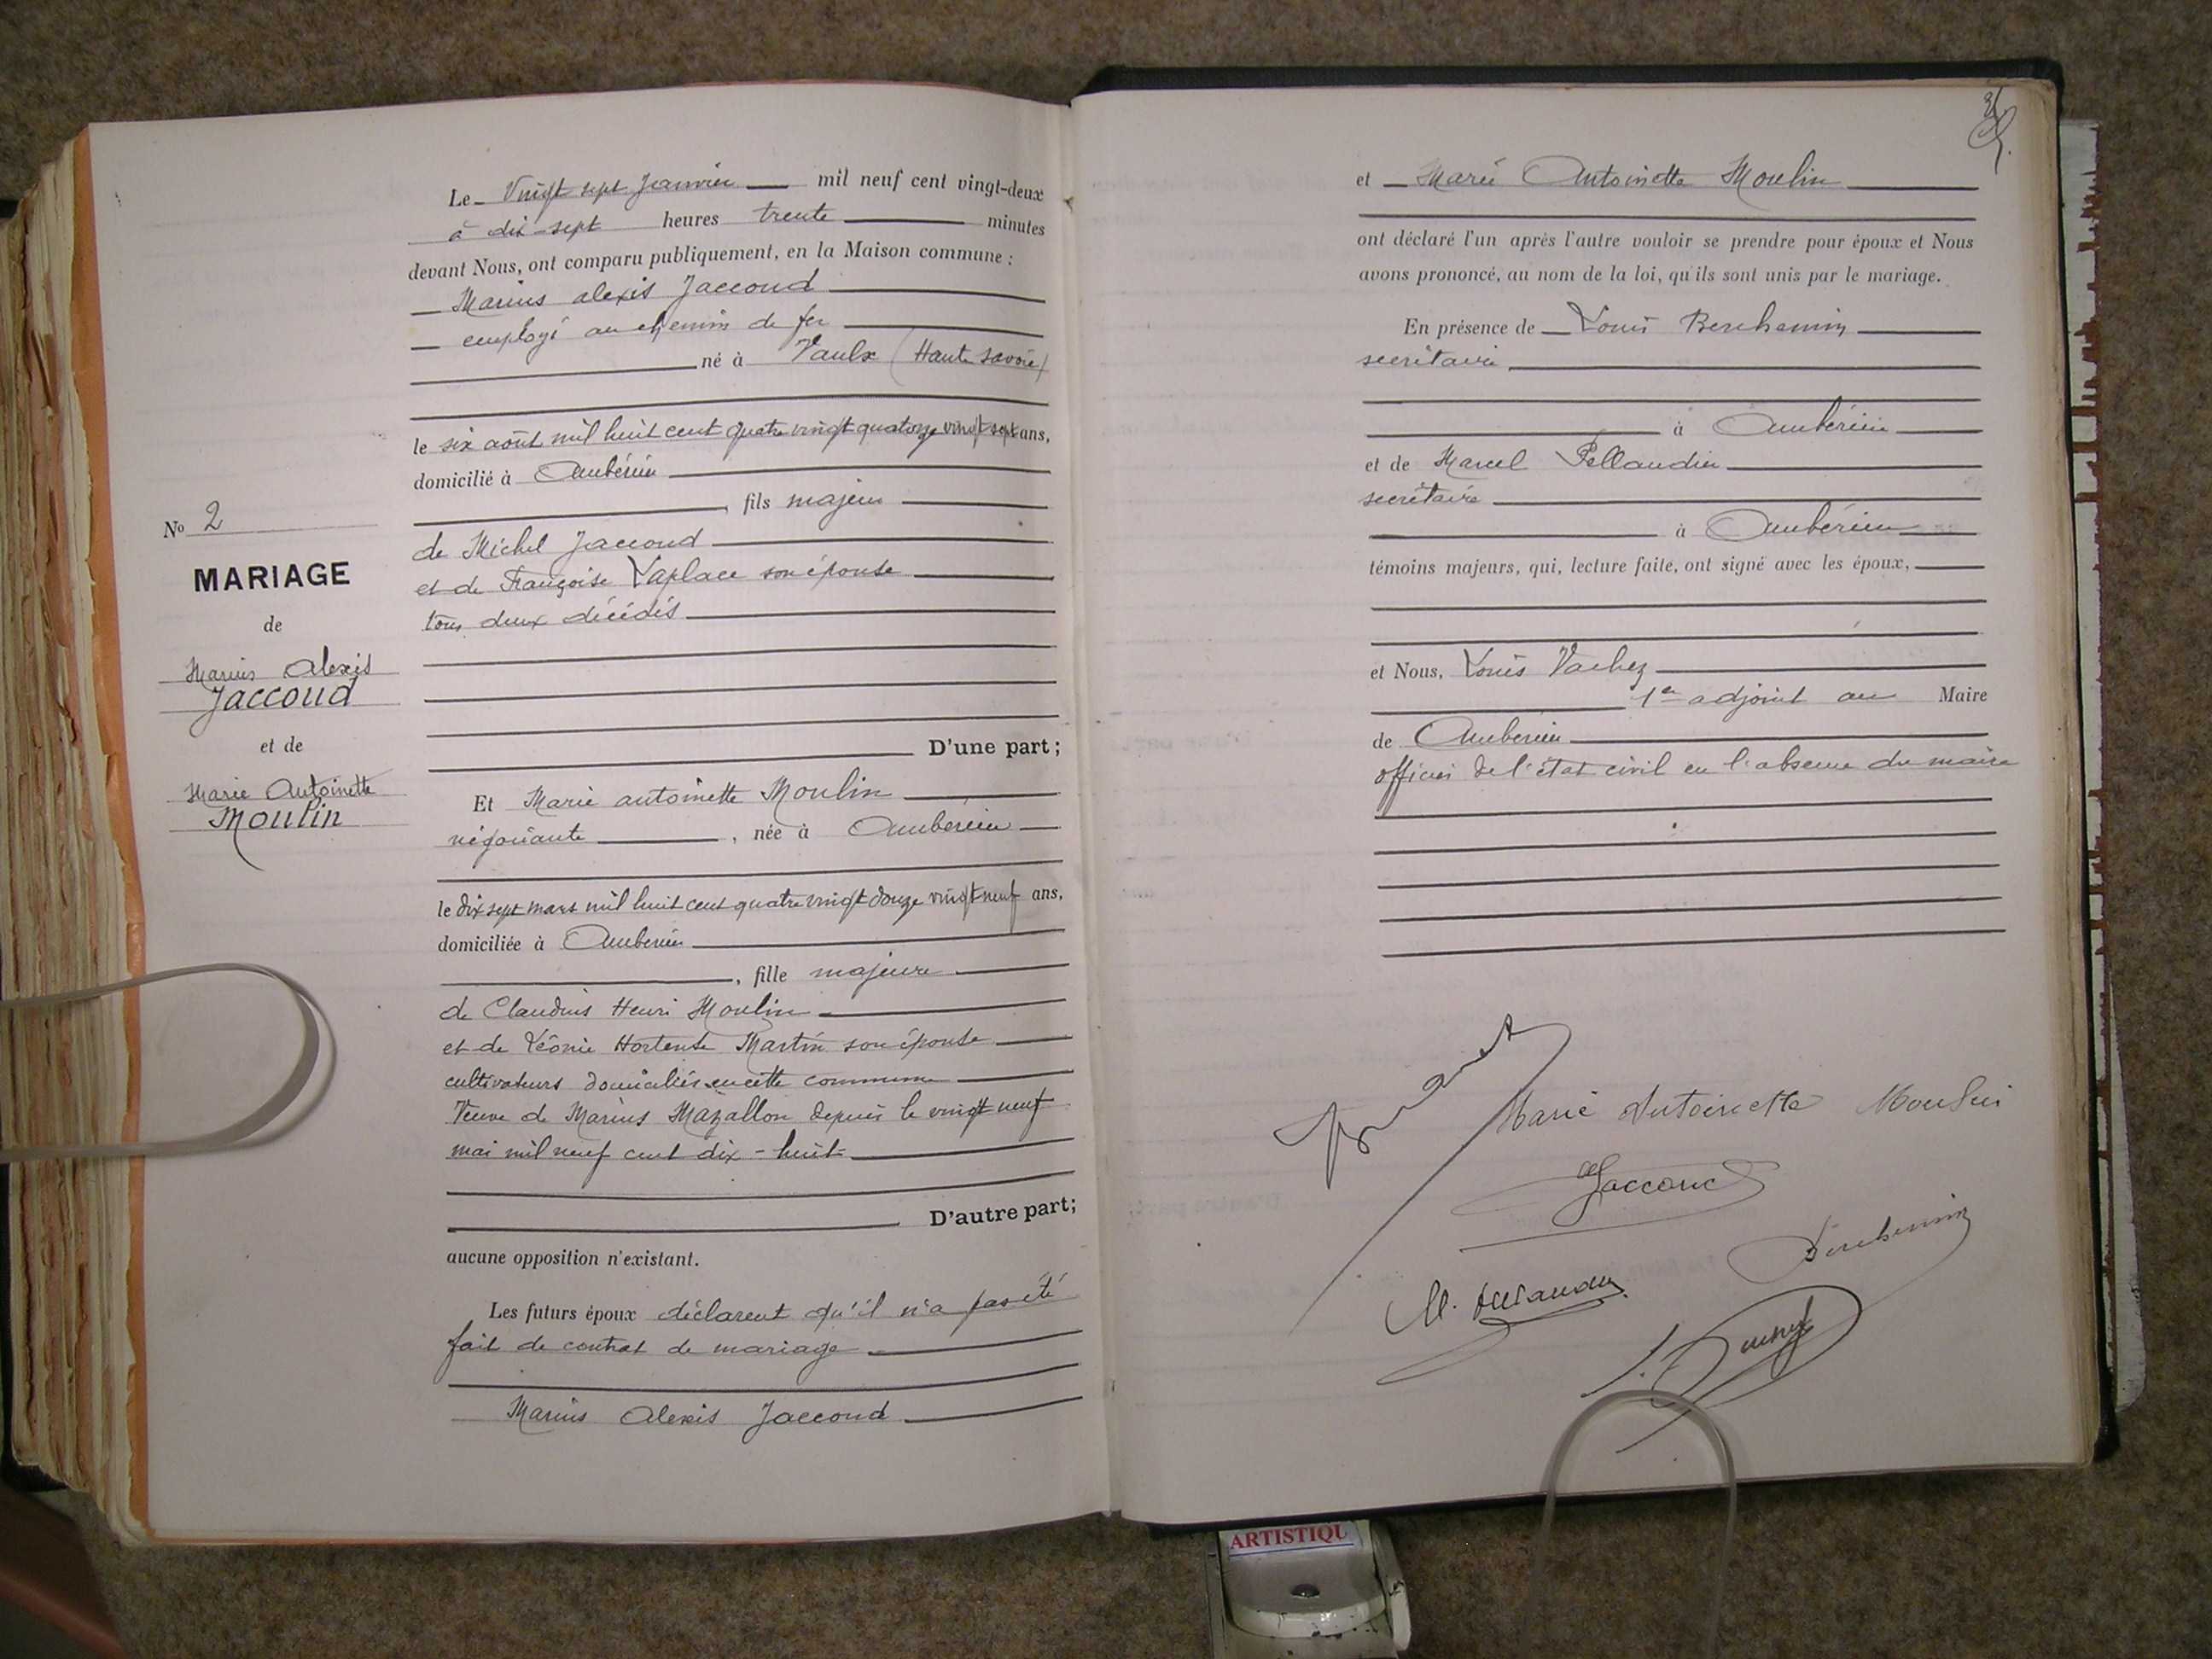 Le Vingt sept Janvier mil neuf cent vingt-deux
à dix-sept heures trente minutes
devant Nous, ont comparu publiquement, en la Maison commune :
Marius alexis Jaccoud
employé au chemin de fer
né à Vaulx (Haute Savoie)
le six août mil huit cent quatre vingt quatorze vingt sept ans,
domicilié à Ambérieu
, fils majeur
de Michel Jaccoud
et de Françoise Laplace son épouse
tous deux décédés
D'une part ;
No 2
MARIAGE
de
Marius Alexis
Jaccoud
et de
Marie Antoinette
Moulin
Et Marie antoinette Moulin
négociante , née à Ambérieu
le dix sept mars mil huit cent quatre vingt douze vingt neuf ans,
domiciliée à Ambérieu
, fille majeure
de Claudius Henri Moulin
et de Léonie Hortense Martin son épouse
cultivateurs domiciliés en cette commune
Veuve de Marius Mazallon depuis le vingt neuf
mai mil neuf cent dix-huit
D'autre part;
aucune opposition n'existant.
Les futurs époux déclarent qu'il n'a pas été
fait de contrat de mariage
Marius Alexis Jaccoud
et Marie Antoinette Moulin
ont déclaré l'un après l'autre vouloir se prendre pour époux et Nous
avons prononcé, au nom de la loi, qu'ils sont unis par le mariage.
En présence de Louis Berchemin
secrétaire
à Ambérieu
et de Marcel Pellaudin
secrétaire
à Ambérieu
témoins majeurs, qui, lecture faite, ont signé avec les époux,
et Nous, Louis Vachez
1er adjoint au Maire
de Ambérieu
officier de l'état civil en l'absence du maire
Marie Antoinette Moulin
Jaccoud
Berchemin
ARTISTIQU